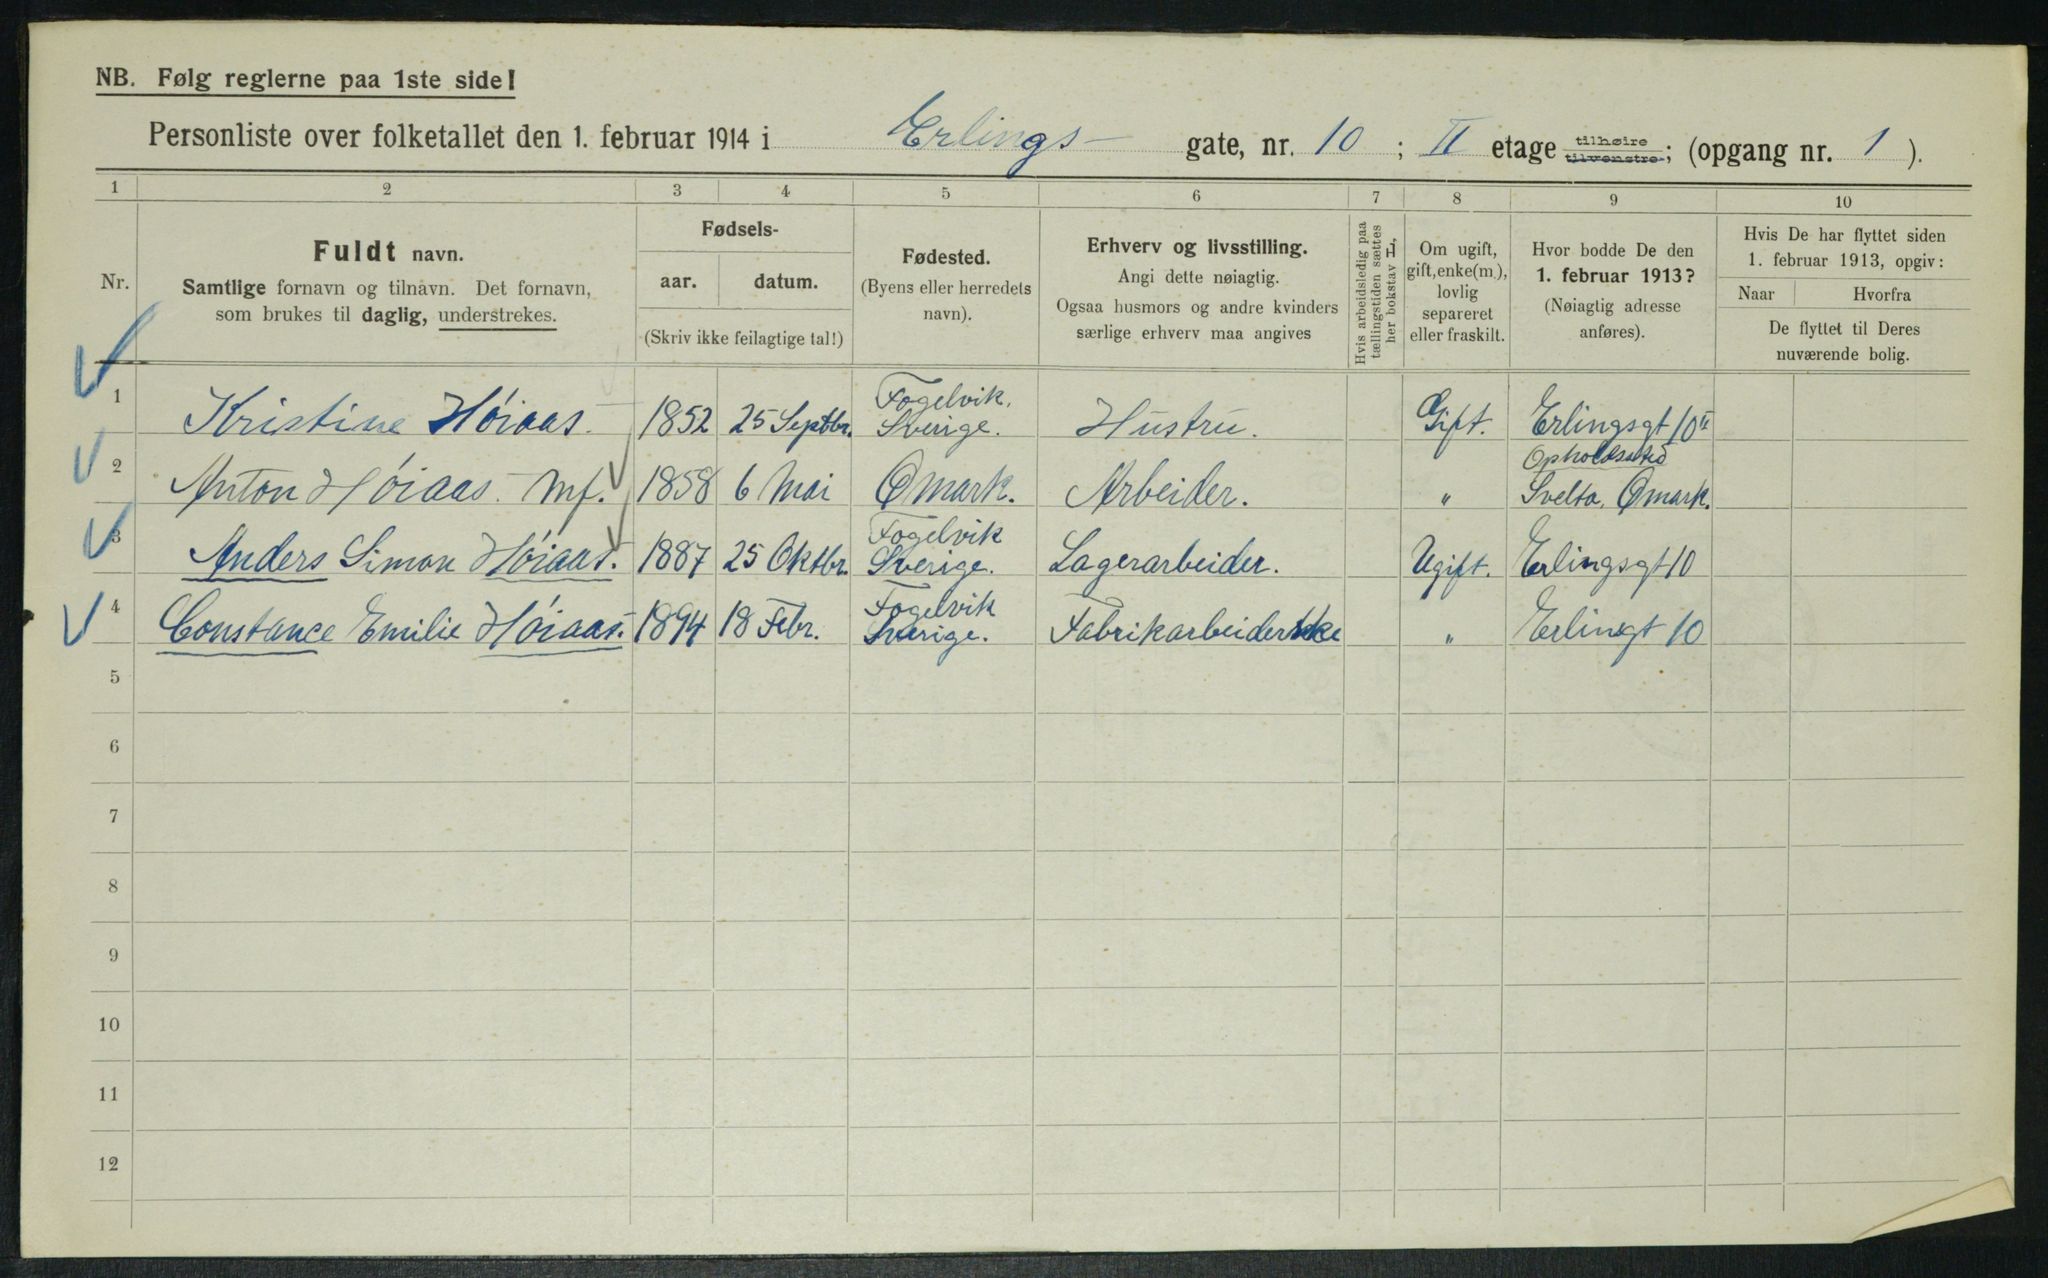 NB. Følg reglerne paa 1ste side!
Personliste over folketallet den 1. februar 1914 i Erlings- gate, nr. 10 ; II etage tilhøire tilvenstre ; (opgang nr. 1 ).
1 2 3 4 5 6 7 8 9 10
Nr.
Fuldt navn.
Samtlige fornavn og tilnavn. Det fornavn,
som brukes til daglig, understrekes.
Fødsels-
aar. datum.
(Skriv ikke feilagtige tal!)
Fødested.
(Byens eller herredets
navn).
Erhverv og livsstilling.
Angi dette nøiagtig.
Ogsaa husmors og andre kvinders
særlige erhverv maa angives
Hvis arbeidsledig paa
tællingstiden sættes
her bokstav L.
Om ugift,
gift, enke(m.),
lovlig
separeret
eller fraskilt.
Hvor bodde De den
1. februar 1913?
(Nøiagtig adresse
anføres).
Hvis De har flyttet siden
1. februar 1913, opgiv:
Naar Hvorfra
De flyttet til Deres
nuværende bolig.
1 Kristine Høiaas. 1852 25 Septbr. Fogelvik. Sverige. Hustru. Gift. Erlingsgt 10 II
2 Anton Høiaas. Mf. 1858 6 Mai Ømark. Arbeider. " Opholdssted Svelta, Ømark.
3 Anders Simon Høiaas. 1887 25 Oktbr. Fogelvik Sverige. Lagerarbeider. Ugift. Erlingsgt 10
4 Constance Emilie Høiaas. 1894 18 Febr. Fogelvik Sverige. Fabrikarbeiderske " Erlingt 10
5
6
7
8
9
10
11
12